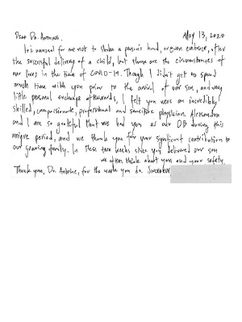 Dear Dr. Antoine, May 13, 2020
It's unusual for me not to shake a person's hand, or even embrace, after
the successful delivery of a child, but these are the circumstances of
our lives in the time of COVID-19. Though I didn't get to spend
much time with you prior to the arrival of our son, and very
little personal exchange afterwards, I felt you were an incredibly
skilled, compassionate, professional and sensitive physician. Alexandra
and I are so grateful that we had you as our OB during this
unique period, and we thank you for your significant contribution to
our growing family. In these two weeks since you delivered our son
we often think about you and your safety.
Thank you, Dr. Antoine, for the work you do. Sincerely